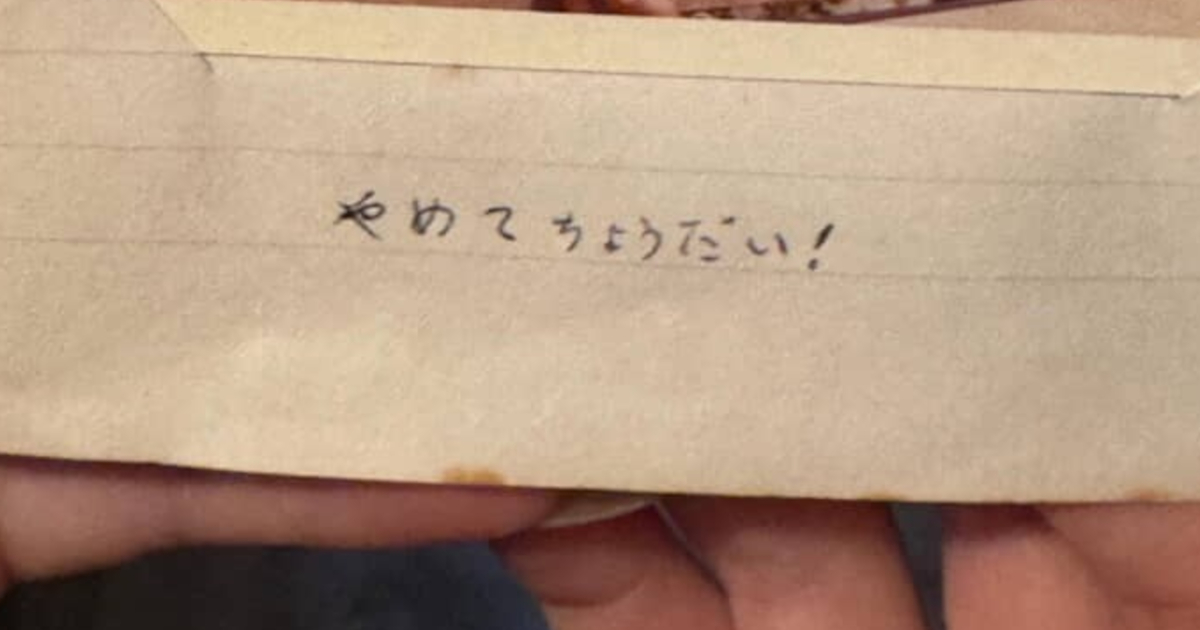 やめてちょうだい!